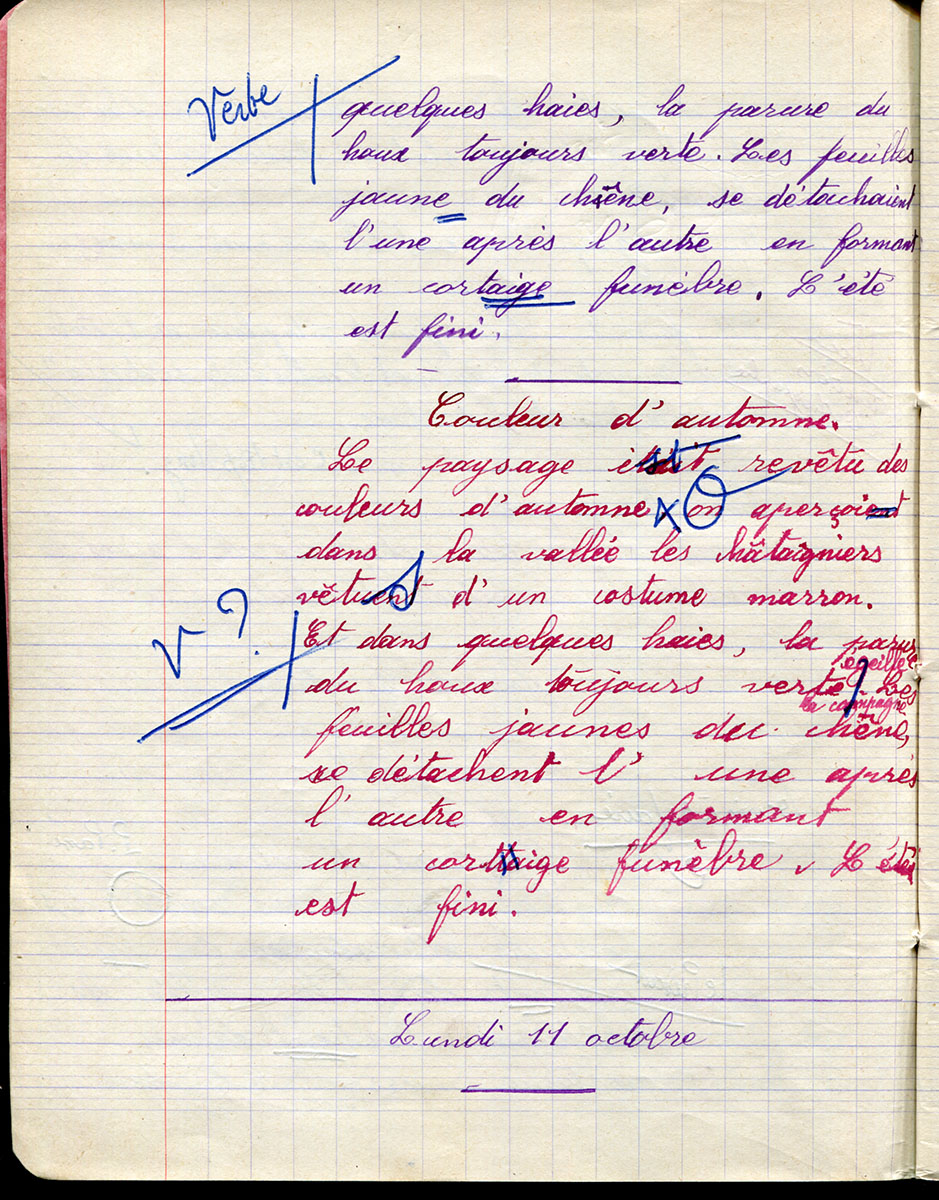 Verbe
quelques haies, la parure du
houx toujours verte. Les feuilles
jaune du chêne, se détachaient
l'une après l'autre en formant
un cortaige funèbre. L'été
est fini.
Couleur d'automne.
Le paysage est revêtu des
couleurs d'automne. On aperçoient
dans la vallée les châtaîgniers
vêtuent d'un costume marron.
V ?
Et dans quelques haies, la parure
égeille
du houx toujours verte, Les
la campagne
feuilles jaunes du chêne,
se détachent l'une après
l'autre en formant
un cortaige funèbre. L'été
est fini.
Lundi 11 octobre